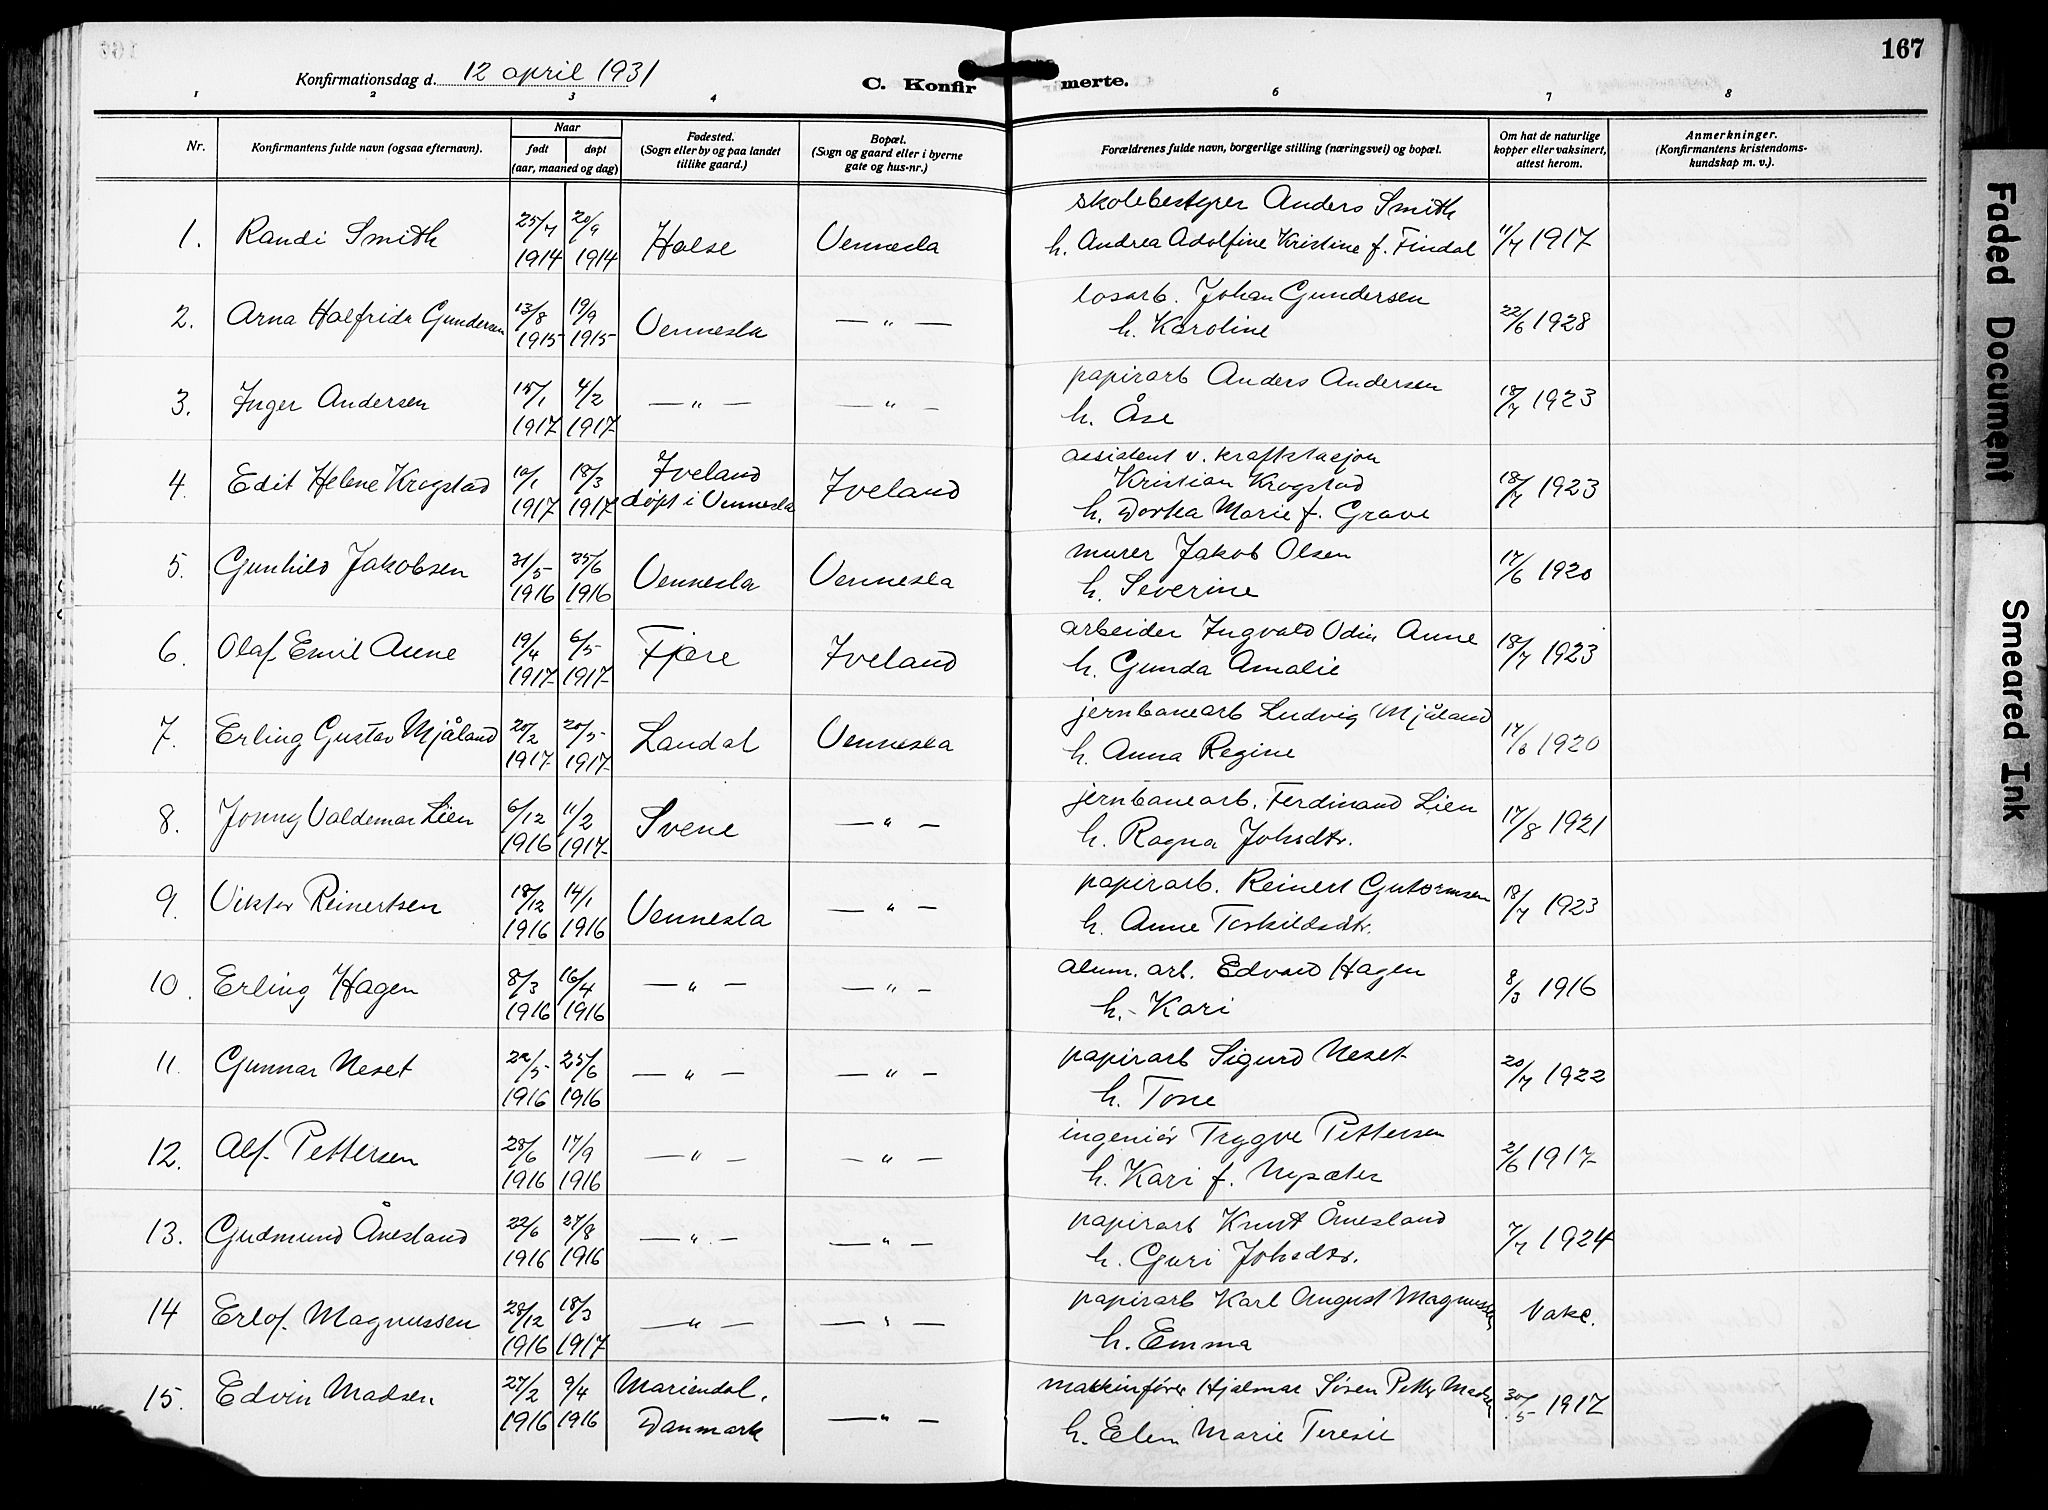 167
Konfirmationsdag d. 12 april 1931
C. Konfirmerte.
1 2 3 4 6 7 8
Nr.
Konfirmantens fulde navn (ogsaa efternavn).
Naar
født døpt
(aar, maaned og dag)
Fødested.
(Sogn eller by og paa landet
tillike gaard.)
Bopæl.
(Sogn og gaard eller i byerne
gate og hus-nr.)
Forældrenes fulde navn, borgerlige stilling (næringsvei) og bopæl.
Om hat de naturlige
kopper eller vaksinert,
attest herom.
Anmerkninger.
(Konfirmantens kristendoms-
kundskap m. v.).
1. Randi Smith 25/7 1914 20/9 1914 Halse Vennesla
skolebestyrer Anders Smith
h. Andrea Adolfine Kristine f. Findal 11/7 1917
2. Arna Halfrida Gundersen 13/8 1915 19/9 1915 Vennesla — " —
losarb. Johan Gundersen
h. Karoline 22/6 1928
3. Inger Andersen 15/1 1917 4/2 1917 — " — — " —
papirarb Anders Andersen
h. Åse 18/7 1923
4. Edit Helene Krogstad 10/1 1917 18/3 1917 Iveland
døpt i Vennesla Iveland
assistent v. kraftstasjon
Kristian Krogstad
h. Dorka Marie f. Grave 18/7 1923
5. Gunhild Jakobsen 31/5 1916 25/6 1916 Vennesla Vennesla
murer Jakob Olsen
h. Severine 17/6 1920
6. Olaf Emil Aune 19/4 1917 6/5 1917 Fjære Iveland
arbeider Ingvald Odin Aune
h. Gunda Amalie 18/7 1923
7. Erling Gustav Mjåland 20/2 1917 20/5 1917 Laudal Vennesla
jernbanearb Ludvig Mjåland
h. Anna Regine 17/6 1920
8. Jonny Valdemar Lien 6/12 1916 11/2 1917 Svene — " —
jernbanearb. Ferdinand Lien
h. Ragna Johsdtr. 17/8 1921
9. Viktor Reinertsen 18/12 1916 14/1 1916 Vennesla — " —
papirarb. Reinert Gutormsen
h. Anne Torkildsdtr. 18/7 1923
10. Erling Hagen 8/3 1916 16/4 1916 — " — — " —
alum. arb. Edvard Hagen
h. Kari 8/3 1916
11. Gunnar Neset 22/5 1916 25/6 1916 — " — — " —
papirarb Sigurd Neset
h. Tone 20/7 1922
12. Alf Pettersen 28/6 1916 17/9 1916 — " — — " —
ingeniør Trygve Pettersen
h. Kari f. Nysæter 2/6 1917
13. Gudmund Ånesland 22/6 1916 27/8 1916 — " — — " —
papirarb Knut Ånesland
h. Guri Johsdtr. 7/7 1924
14 Erlof Magnussen 28/12 1916 18/3 1917 — " — — " —
papirarb Karl August Magnussen
h. Emma Vakc.
15. Edvin Madsen 27/2 1916 9/4 1916 Mariendal.
Danmark — " —
maskinfører Hjalmar Sören Petter Madsen
h. Elen Marie Teresie 30/5 1917
Faded Document
Smeared Ink